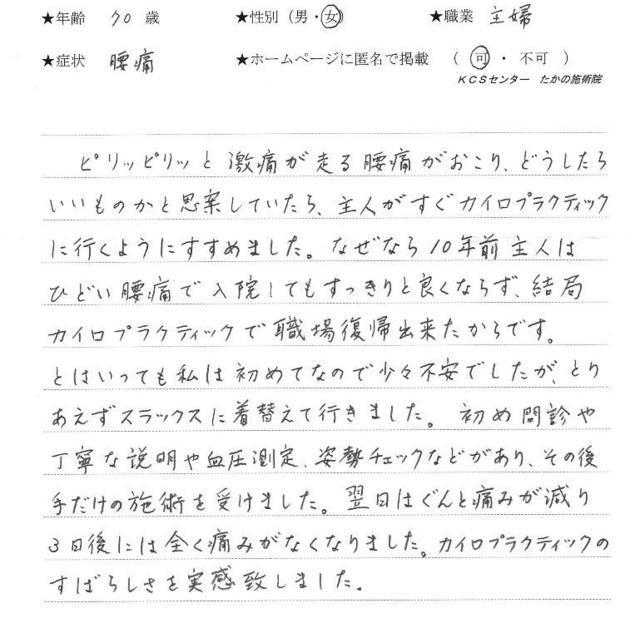 ★年齢 70 歳 ★性別（男・女） ★職業 主婦
★症状 腰痛 ★ホームページに匿名で掲載 （ 可 ・ 不可 ）
KCSセンター たかの施術院
ピリッピリッと激痛が走る腰痛がおこり、どうしたら
いいものかと思案していたら、主人がすぐカイロプラクティック
に行くようにすすめました。なぜなら10年前主人は
ひどい腰痛で入院してもすっきりと良くならず、結局
カイロプラクティックで職場復帰出来たからです。
とはいっても私は初めてなので少々不安でしたが、とり
あえずスラックスに着替えて行きました。初め問診や
丁寧な説明や血圧測定、姿勢チェックなどがあり、その後
手だけの施術を受けました。翌日はぐんと痛みが減り
3日後には全く痛みがなくなりました。カイロプラクティックの
すばらしさを実感致しました。